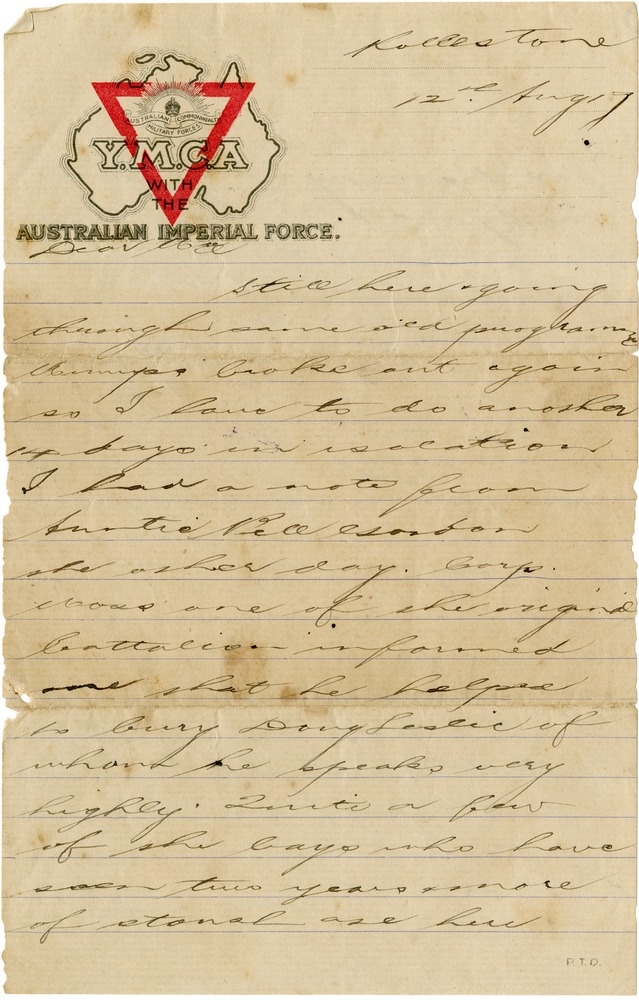 Rollestone
12th Aug 17
AUSTRALIAN COMMONWEALTH
MILITARY FORCES
Y.M.C.A
WITH
THE
AUSTRALIAN IMPERIAL FORCE.
Dear
Still here & going
through same old programme
Mumps broke out again
so I have to do another
14 days in isolation
I had a note from
Auntie Bell Gordon
the other day. Corp.
Moss one of the original
battalion informed
me that he helped
to bury Doug Leslie of
whom he speaks very
highly. Quite a few
of the boys who have
seen two years & more
of are here
P.T.O.